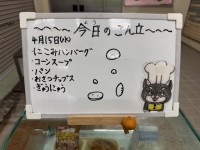 ～～～～今日のこん立～～～
4月15日(火)
・にこみハンバーグ
・コーンスープ
・パン
・おさつチップス
・ぎゅうにゅう